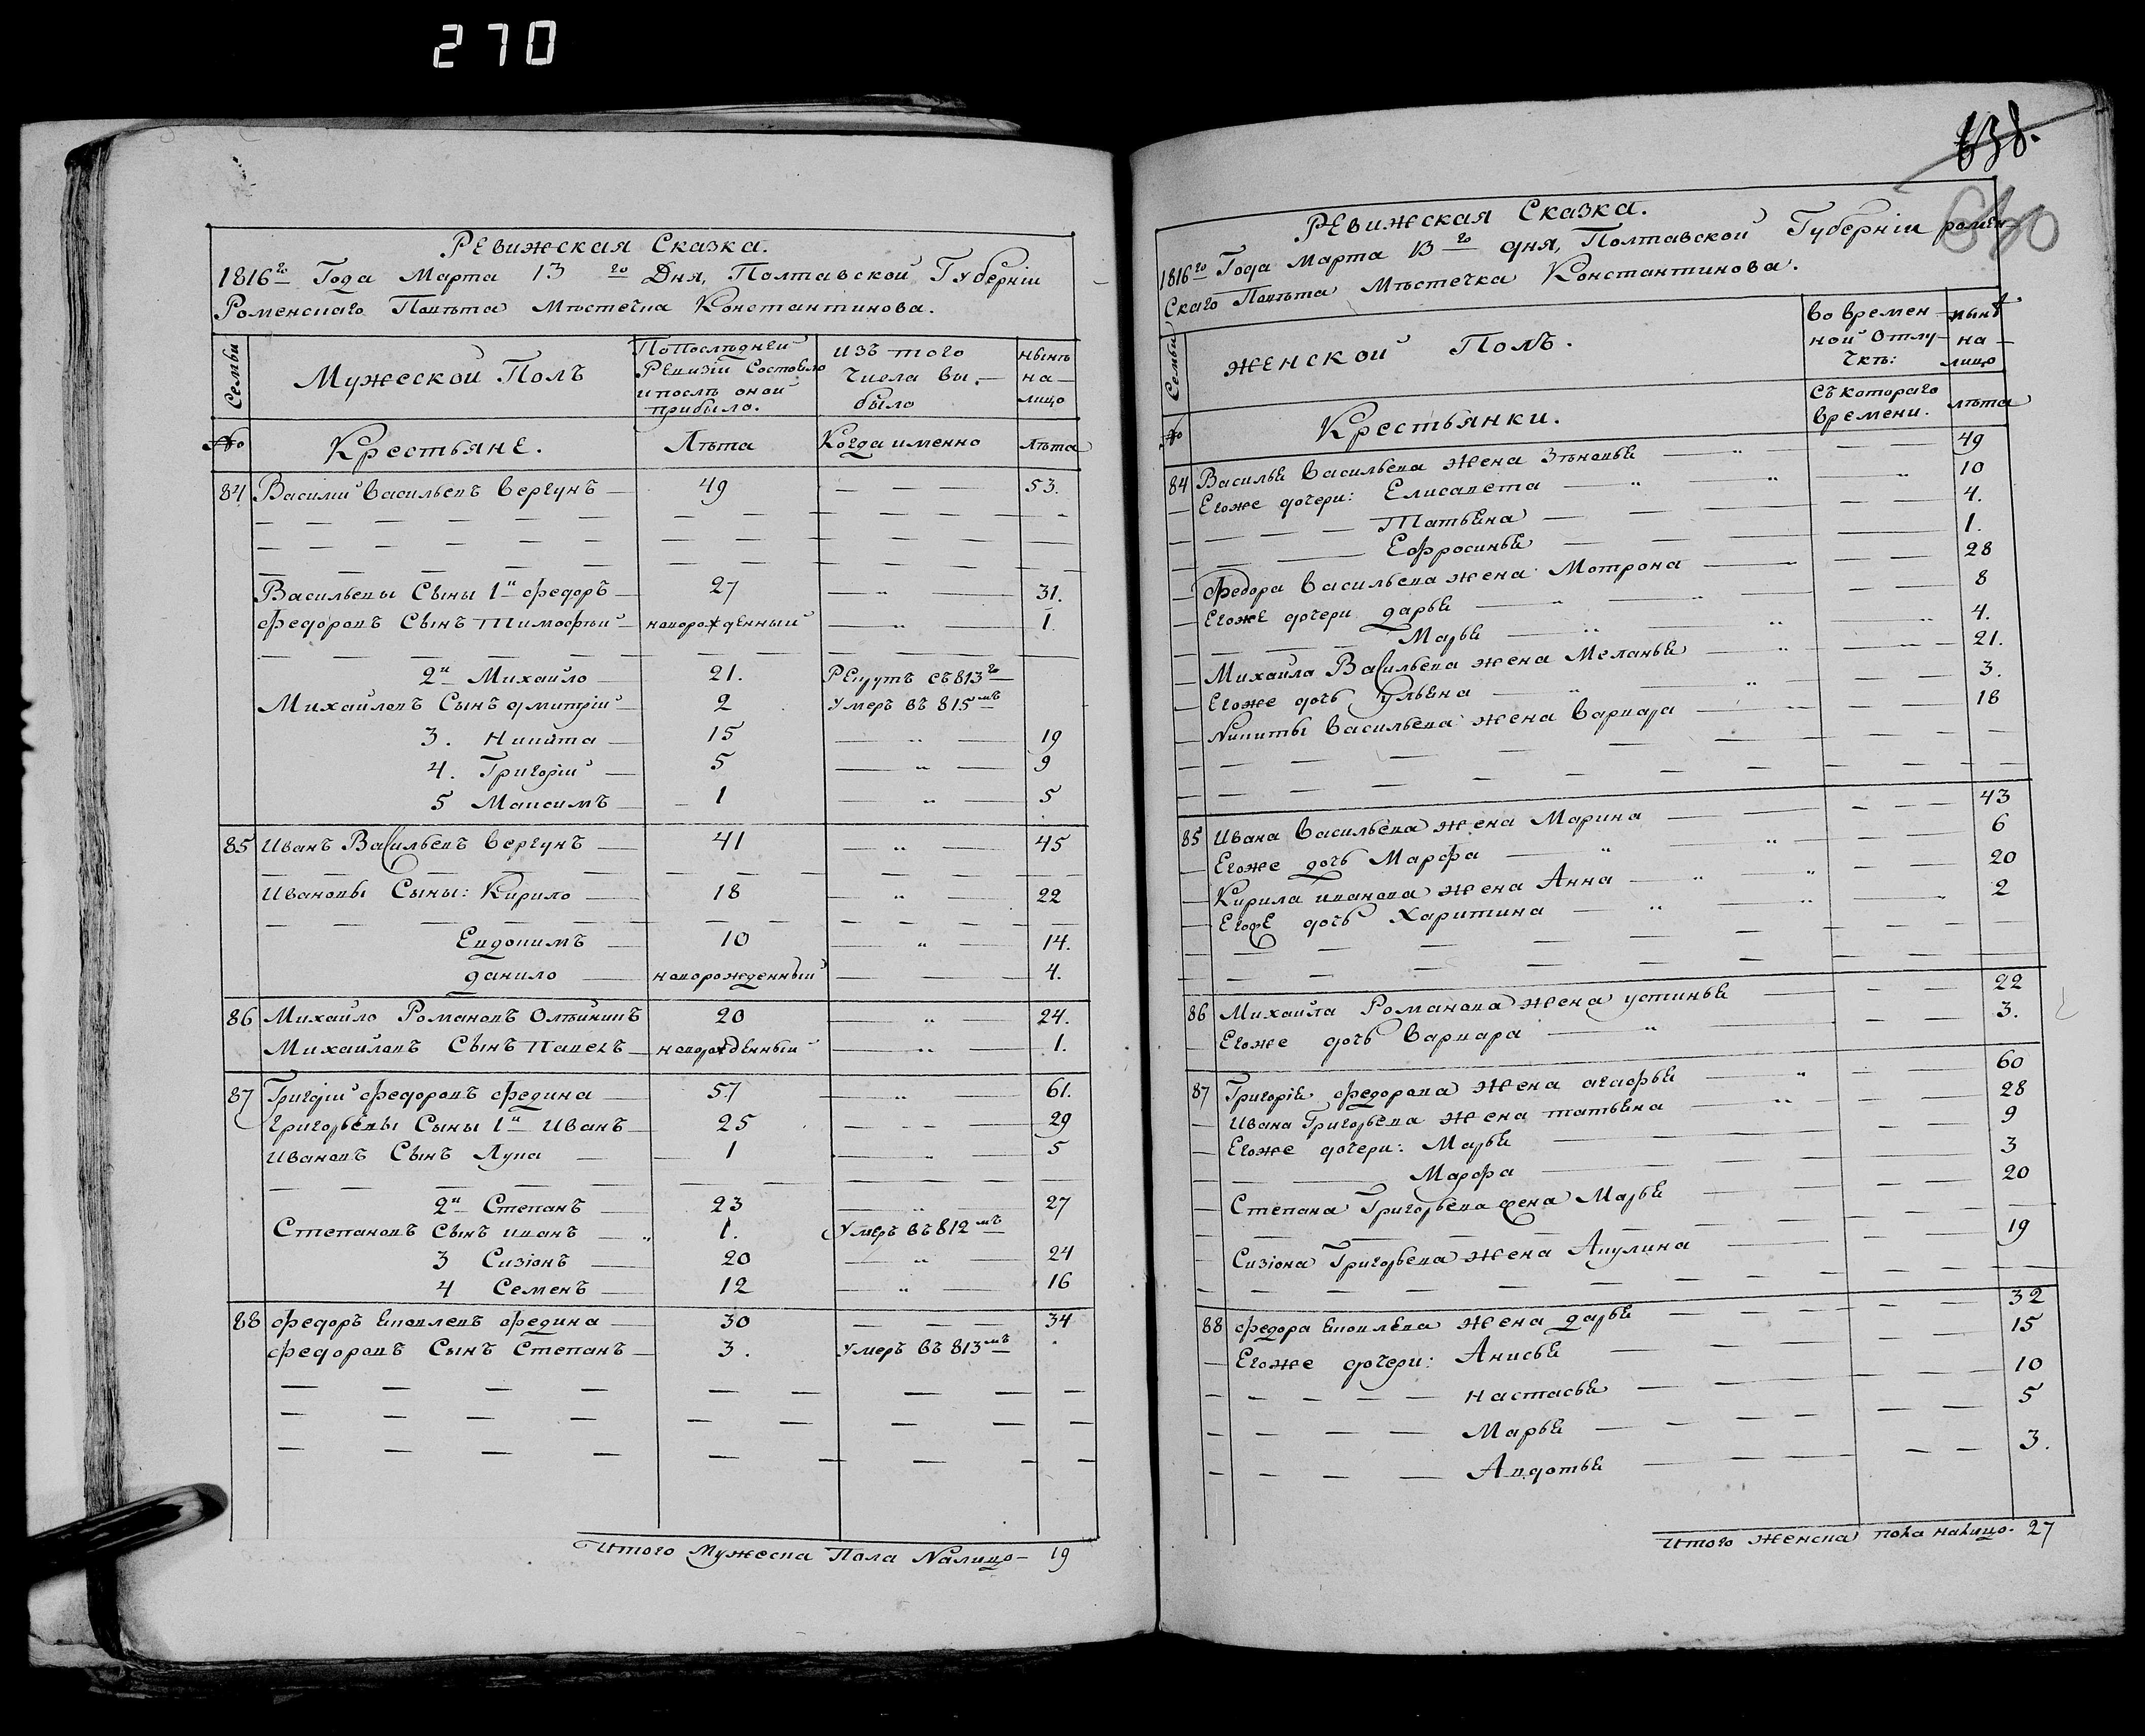 270
Ревижская Сказка.
1816го Года Марта 13го Дня, Полтавской Губерніи
Роменскаго Повѣта Мѣстечка Константинова.
Семьи
Мужеской Полъ
По последней Ревизіи Состояло и послѣ оной прибыло.
изъ того числа вы- было
нынѣ на- лицо
№
Крестьяне.
Лѣта
Когда именно
Лѣта
84 Василий Васильевъ Вергунъ 49 53.
Васильевы Сыны 1й Федоръ 27 31.
Федоровъ Сынъ Тимофѣй новорожденный 1.
2й Михайло 21. Рекрутъ съ 813го
Михайловъ Сынъ Дмитрій 2 Умеръ въ 815мъ
3. Никита 15 19
4. Григорій 5 9
5 Максимъ 1 5
85 Иванъ Васильевъ Вергунъ 41 45
Ивановы Сыны: Кирило 18 22
Евдокимъ 10 14.
Данило новорожденный 4.
86 Михайло Романовъ Олѣйникъ 20 24.
Михайловъ Сынъ Павелъ новорожденный 1.
87 Григорій Федоровъ Федина 57 61.
Григорьевы Сыны 1й Иванъ 25 29
Ивановъ Сынъ Лука 1 5
2й Степанъ 23 27
Степановъ Сынъ Иванъ 1. Умеръ въ 812мъ
3 Сизіонъ 20 24
4 Семенъ 12 16
88 Федоръ Яковлевъ Федина 30 34
Федоровъ Сынъ Степанъ 3. Умеръ въ 813мъ
Итого Мужеска Пола Налицо 19
638.
640
Ревижская Сказка.
1816го Года Марта 13го дня, Полтавской Губерніи Ромен-
скаго Повѣта Мѣстечка Константинова.
Семьи
Женской Полъ.
Во времен- ной отлу- чкѣ:
нынѣ на- лицо
№
Крестьянки.
Съ котораго времени.
лѣта
84 Василья Васильева жена Зѣновья 49
Егоже дочери: Елисавета 10
Татьяна 4.
Ефросинья 1.
Федора Васильева жена Мотрона 28
Егоже дочери Дарья 8
Марья 4.
Михайла Васильева жена Меланья 21.
Егоже дочь Ульяна 3.
Никиты Васильева жена Варвара 18
85 Ивана Васильева жена Марина 43
Егоже дочь Марфа 6
Кирила Иванова жена Анна 20
Егоже дочь Харитина 2
86 Михайла Романова жена Устинья 22
Егоже дочь Варвара 3.
87 Григорія Федорова жена Агафья 60
Ивана Григорьева жена Татьяна 28
Егоже дочери: Марья 9
Марфа 3
Степана Григорьева жена Марья 20
Сизіона Григорьева жена Акулина 19
88 Федора Яковлева жена Дарья 32
Егоже дочери: Анисья 15
Настасья 10
Марья 5
Авдотья 3.
Итого Женска пола налицо. 27